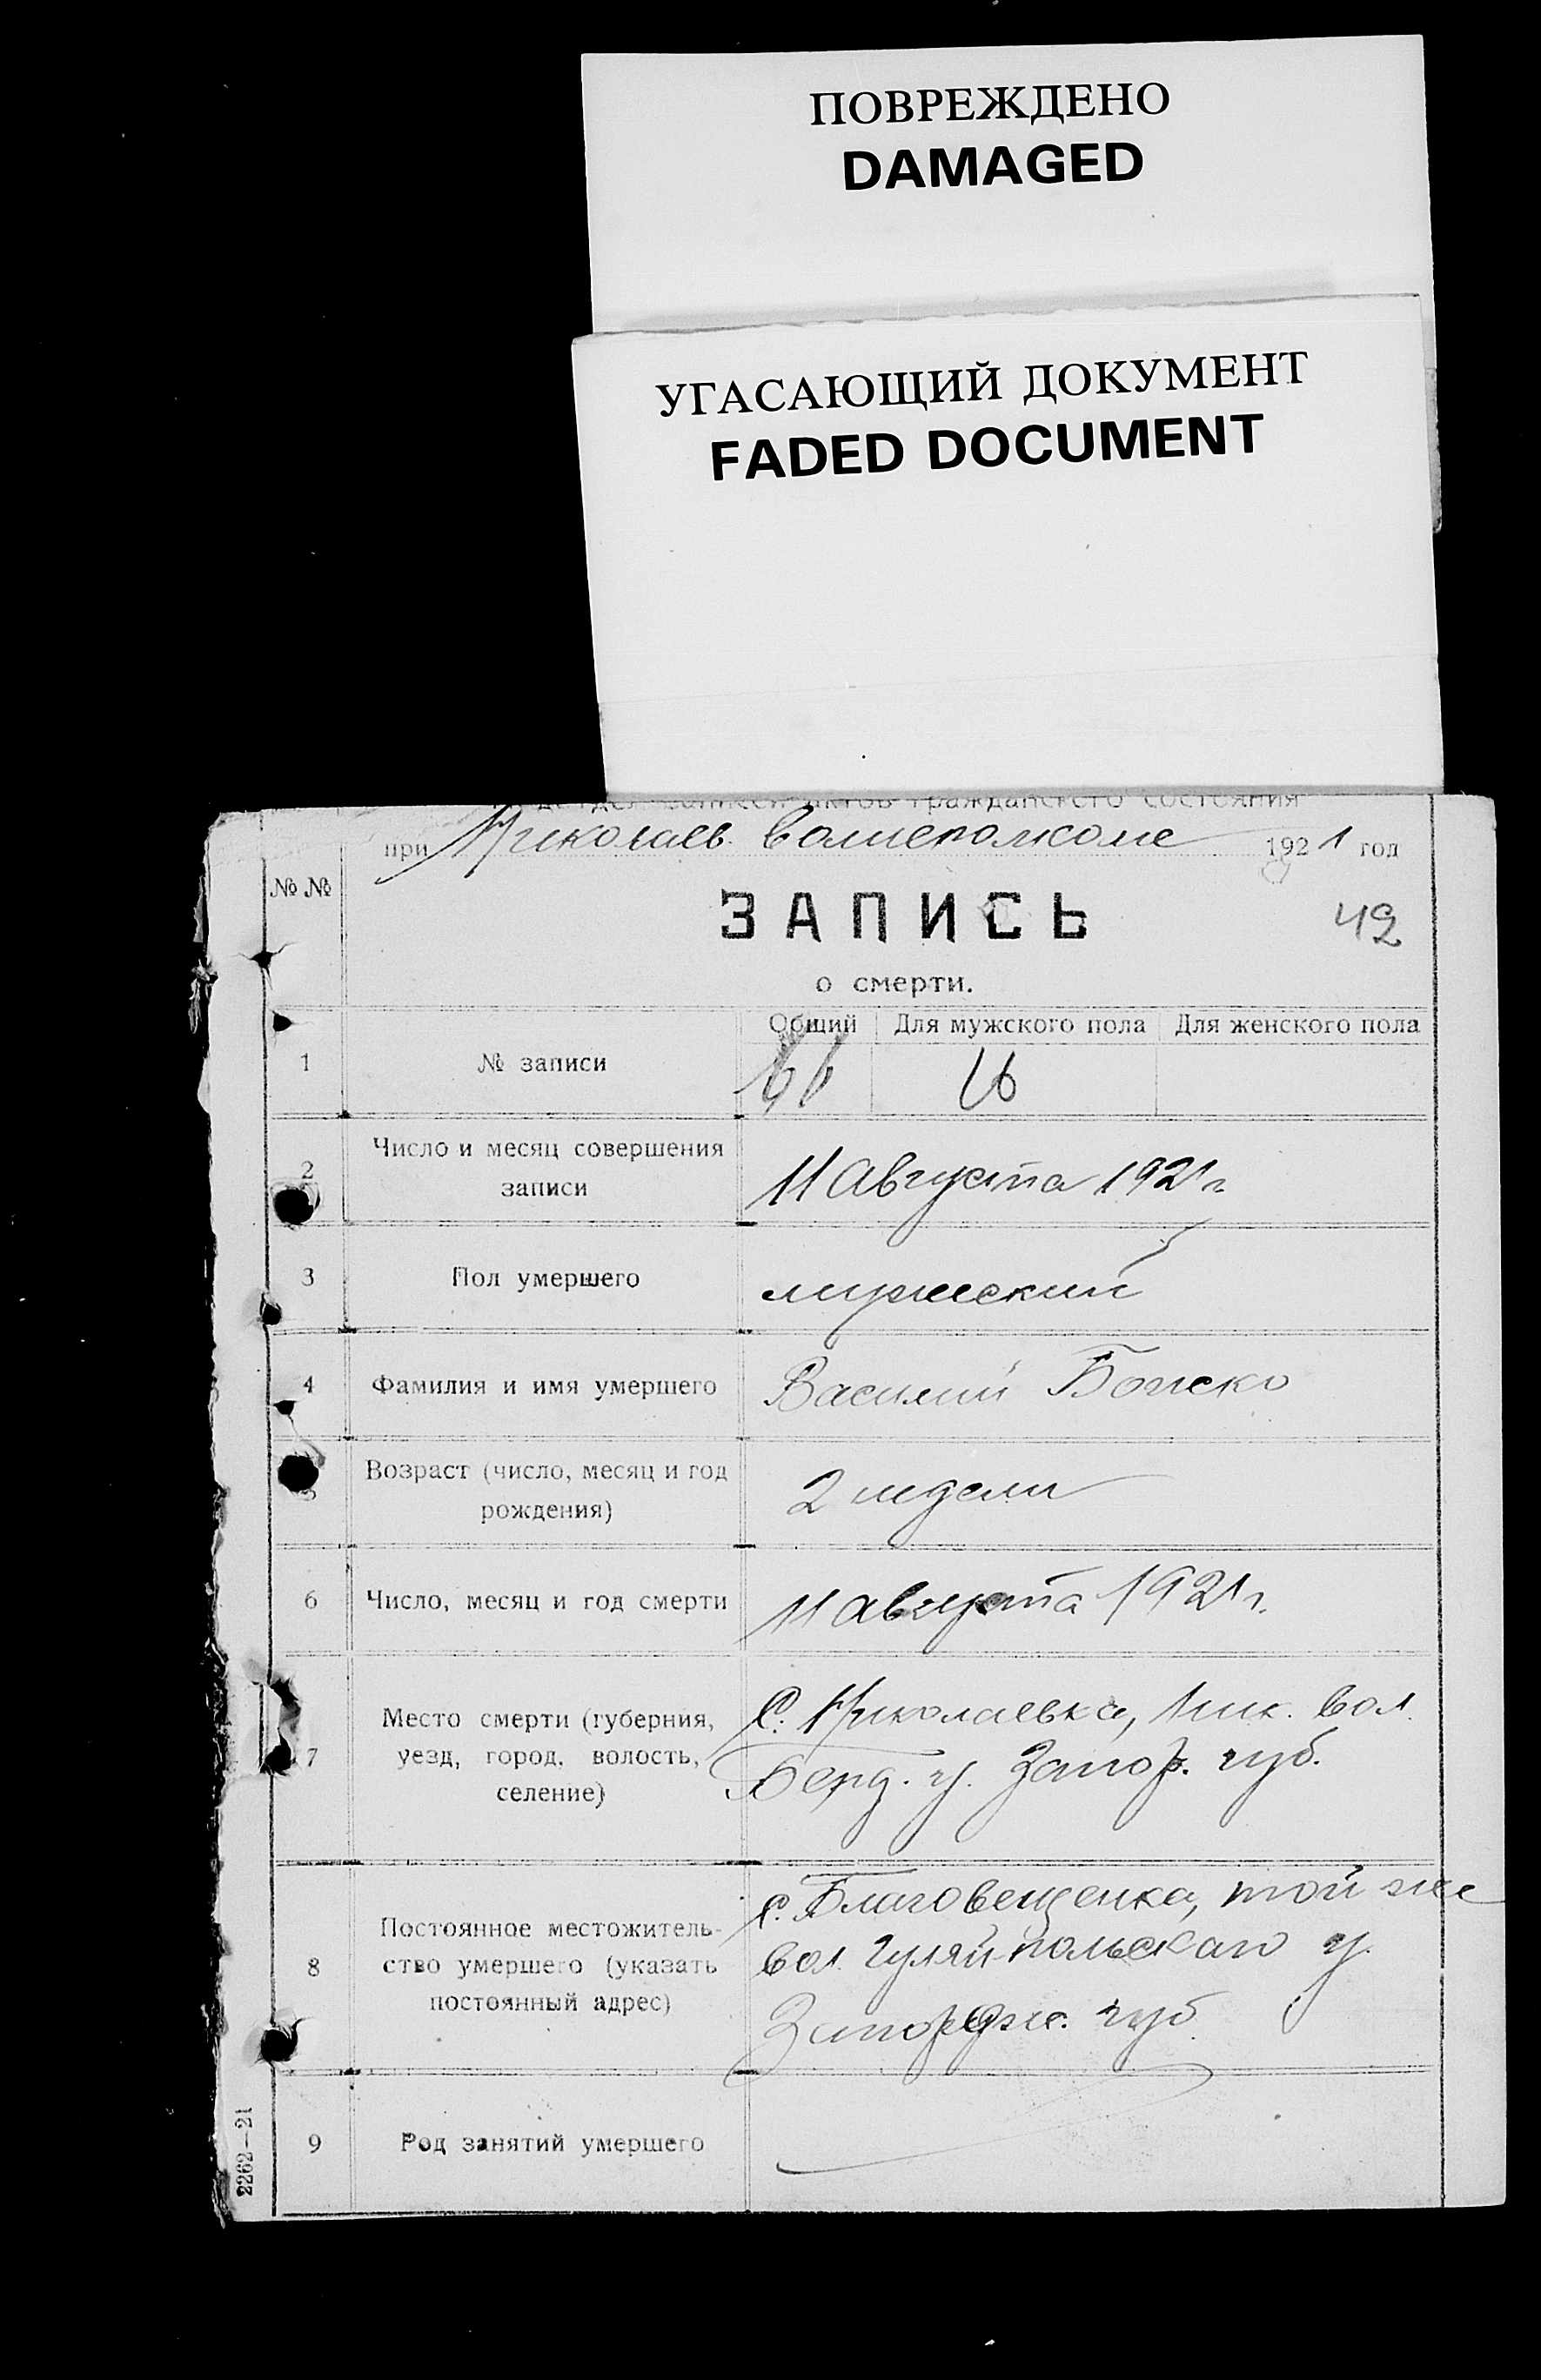 ПОВРЕЖДЕНО
DAMAGED
УГАСАЮЩИЙ ДОКУМЕНТ
FADED DOCUMENT
записи актов гражданского состояния
при Николаев. волисполкоме 1921 год
№ №
ЗАПИСЬ
42
о смерти.
Общий Для мужского пола Для женского пола
1 № записи 16
2 Число и месяц совершения
записи
11 Августа 1921 г.
3 Пол умершего мужеский
4 Фамилия и имя умершего Василий
5 Возраст (число, месяц и год
рождения)
2 недели
6 Число, месяц и год смерти 11 августа 1921 г.
7 Место смерти (губерния,
уезд, город, волость,
селение)
С. Николаевка, Ник. вол.
Берд. у. Запор. губ.
8 Постоянное местожитель-
ство умершего (указать
постоянный адрес)
С. Благовещенка, той же
вол. Гуляй-польскаго у.
Запорож. губ.
9 Род занятий умершего
2262—21